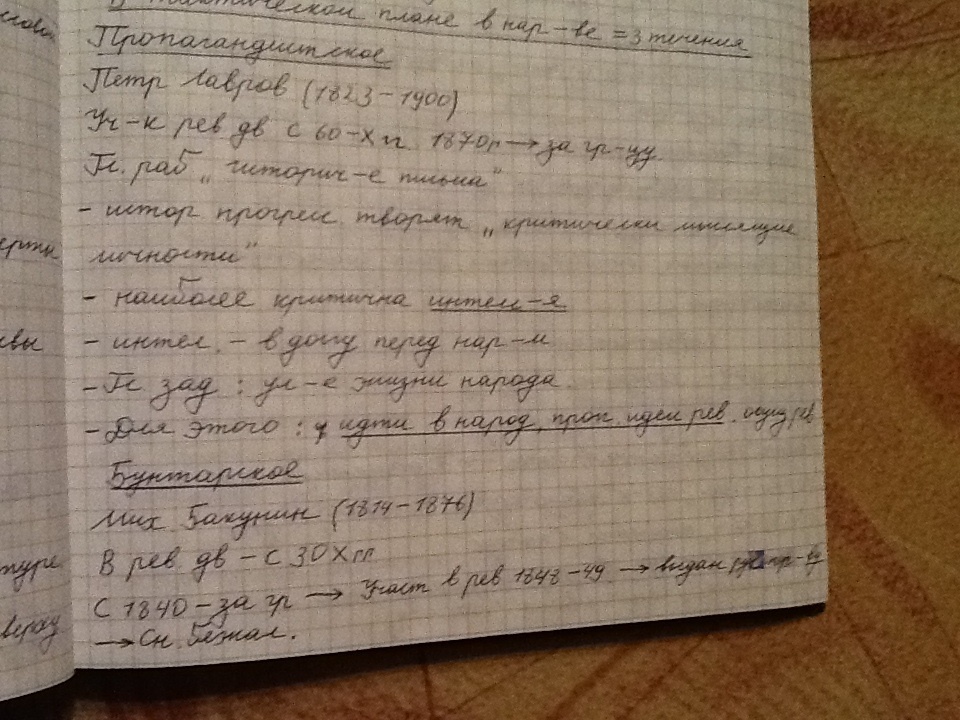 В тактическом плане в нар-ве = 3 течения
Пропагандистское
Петр Лавров (1823-1900)
Уч-к рев дв с 60-х гг. 1870г → за гр-цу.
Гл. раб „историч-е письма"
- истор прогресс творят „критически мыслящие
личности"
- наиболее критична интел-я
- интел. - в долгу перед нар-м
- Гл зад : ул-е жизни народа.
- Для этого : идти в народ, проп. идеи рев.
Бунтарское
Мих Бакунин (1814-1876)
В рев дв - с 30х гг
С 1840 - за гр → Участ в рев 1848-49 → выдан
→ Сн. бежал.
ерты
туре